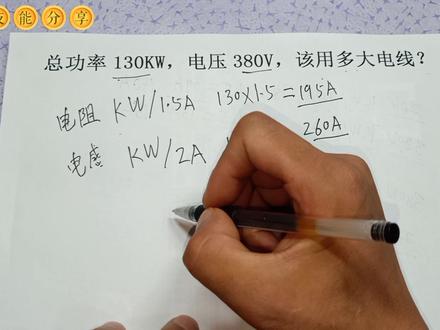 技能分享
总功率 130KW，电压 380V，该用多大电线？
电阻 KW/1.5A 130×1.5=195A
电感 KW/2A 260A